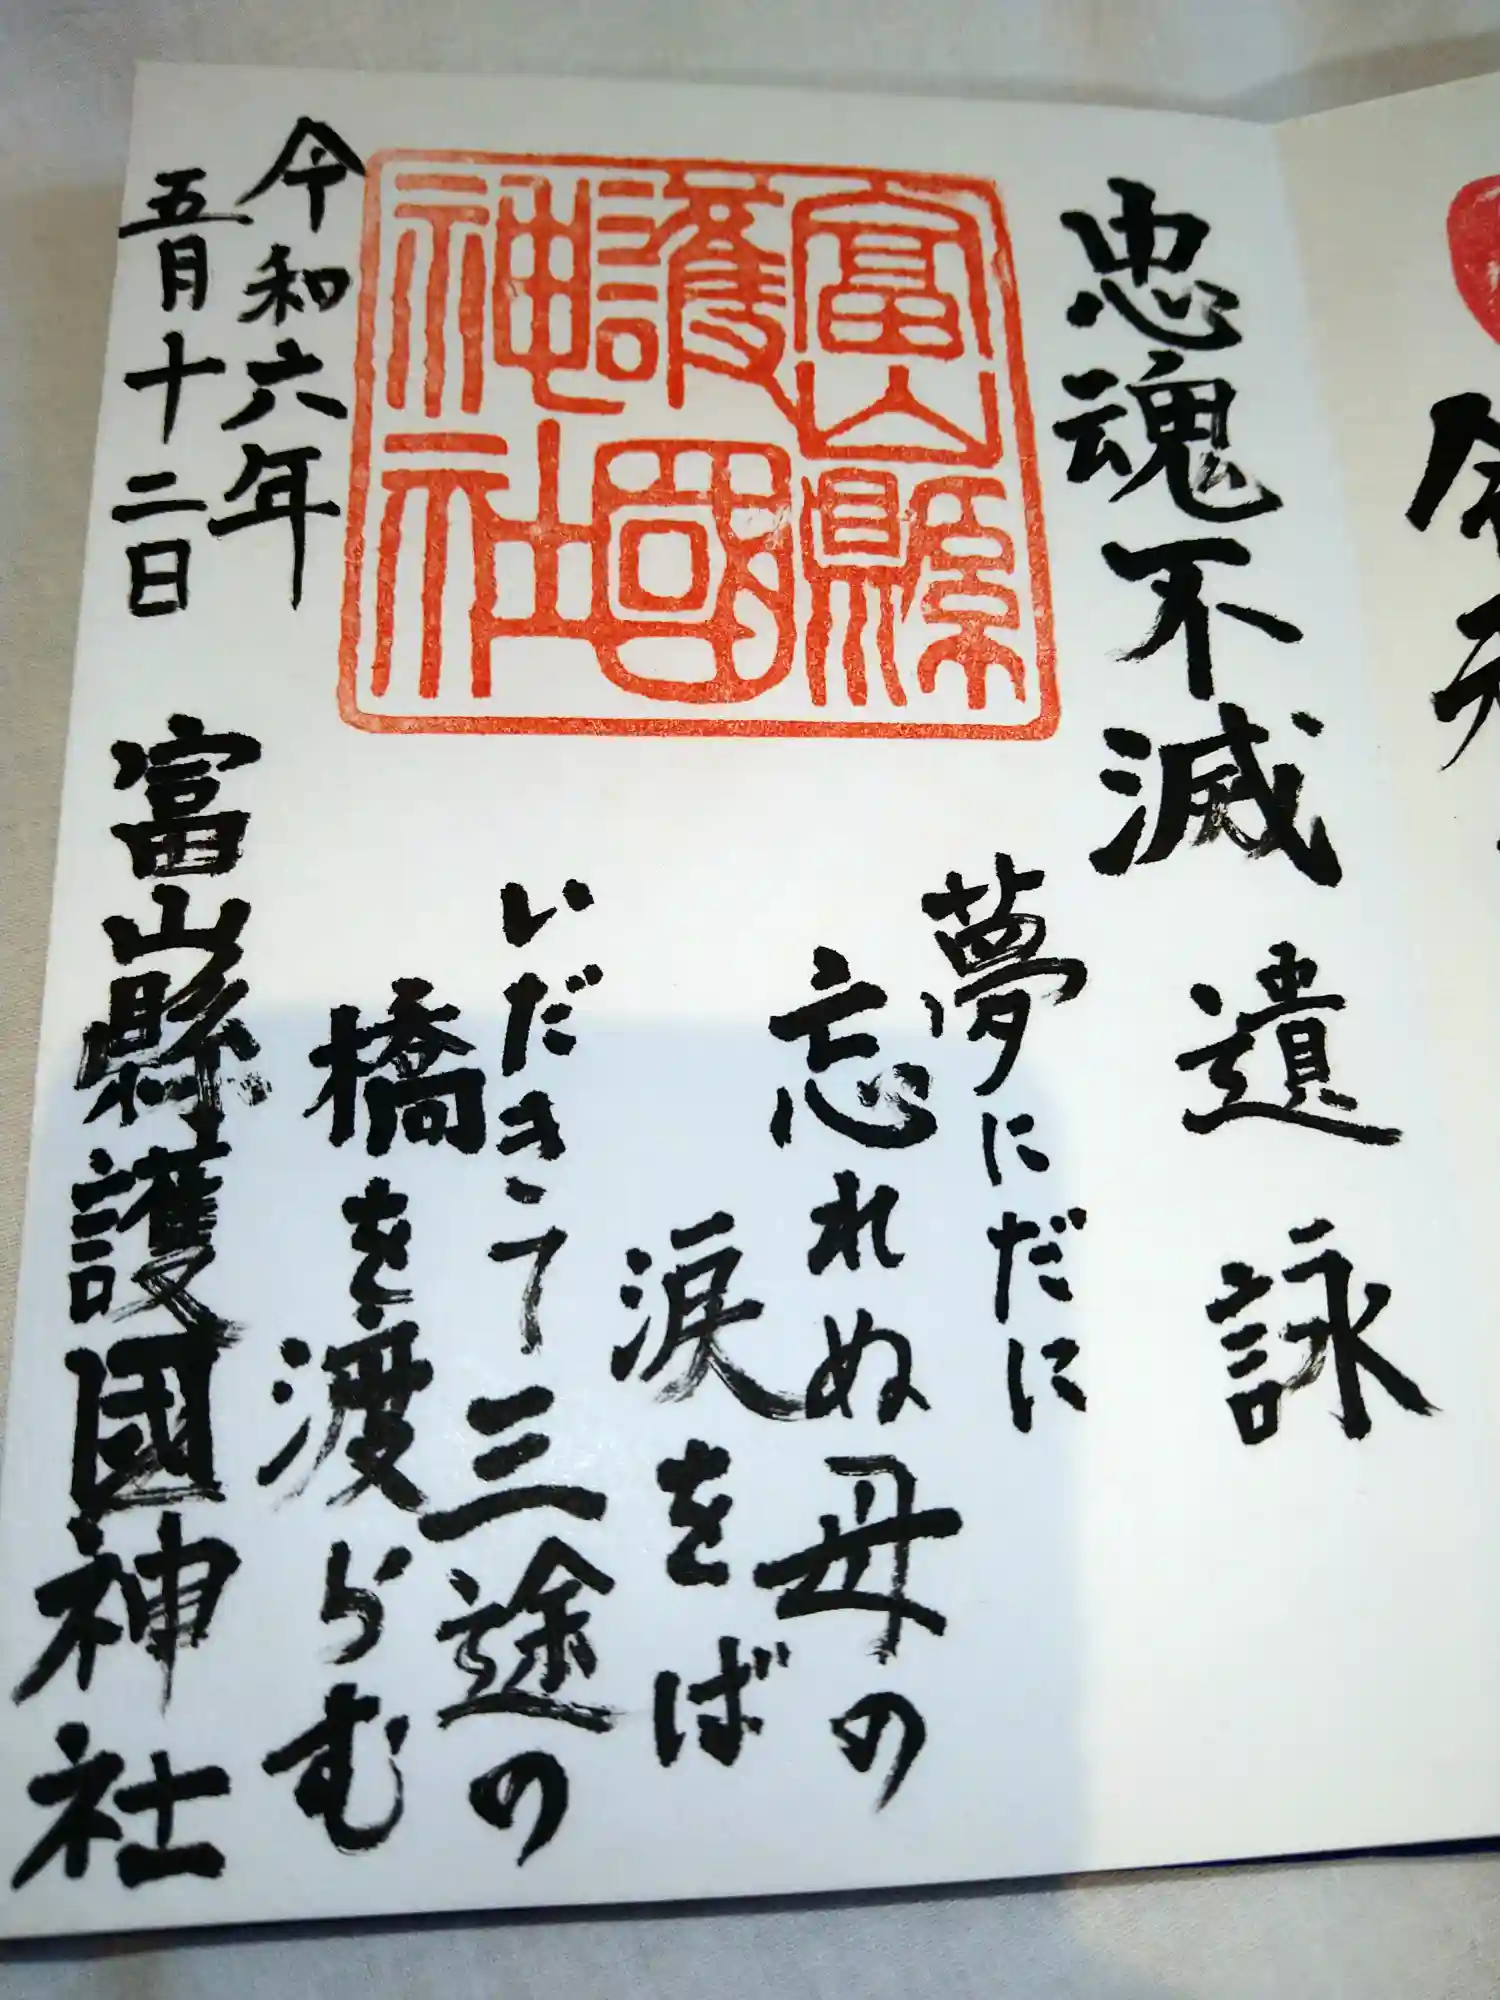 忠魂不滅
遺詠
夢にだに
忘れぬ母の
涙をば
いだきて三途の
橋を渡らむ
富山縣
護國
神社
令和六年
五月十二日
富山縣護國神社